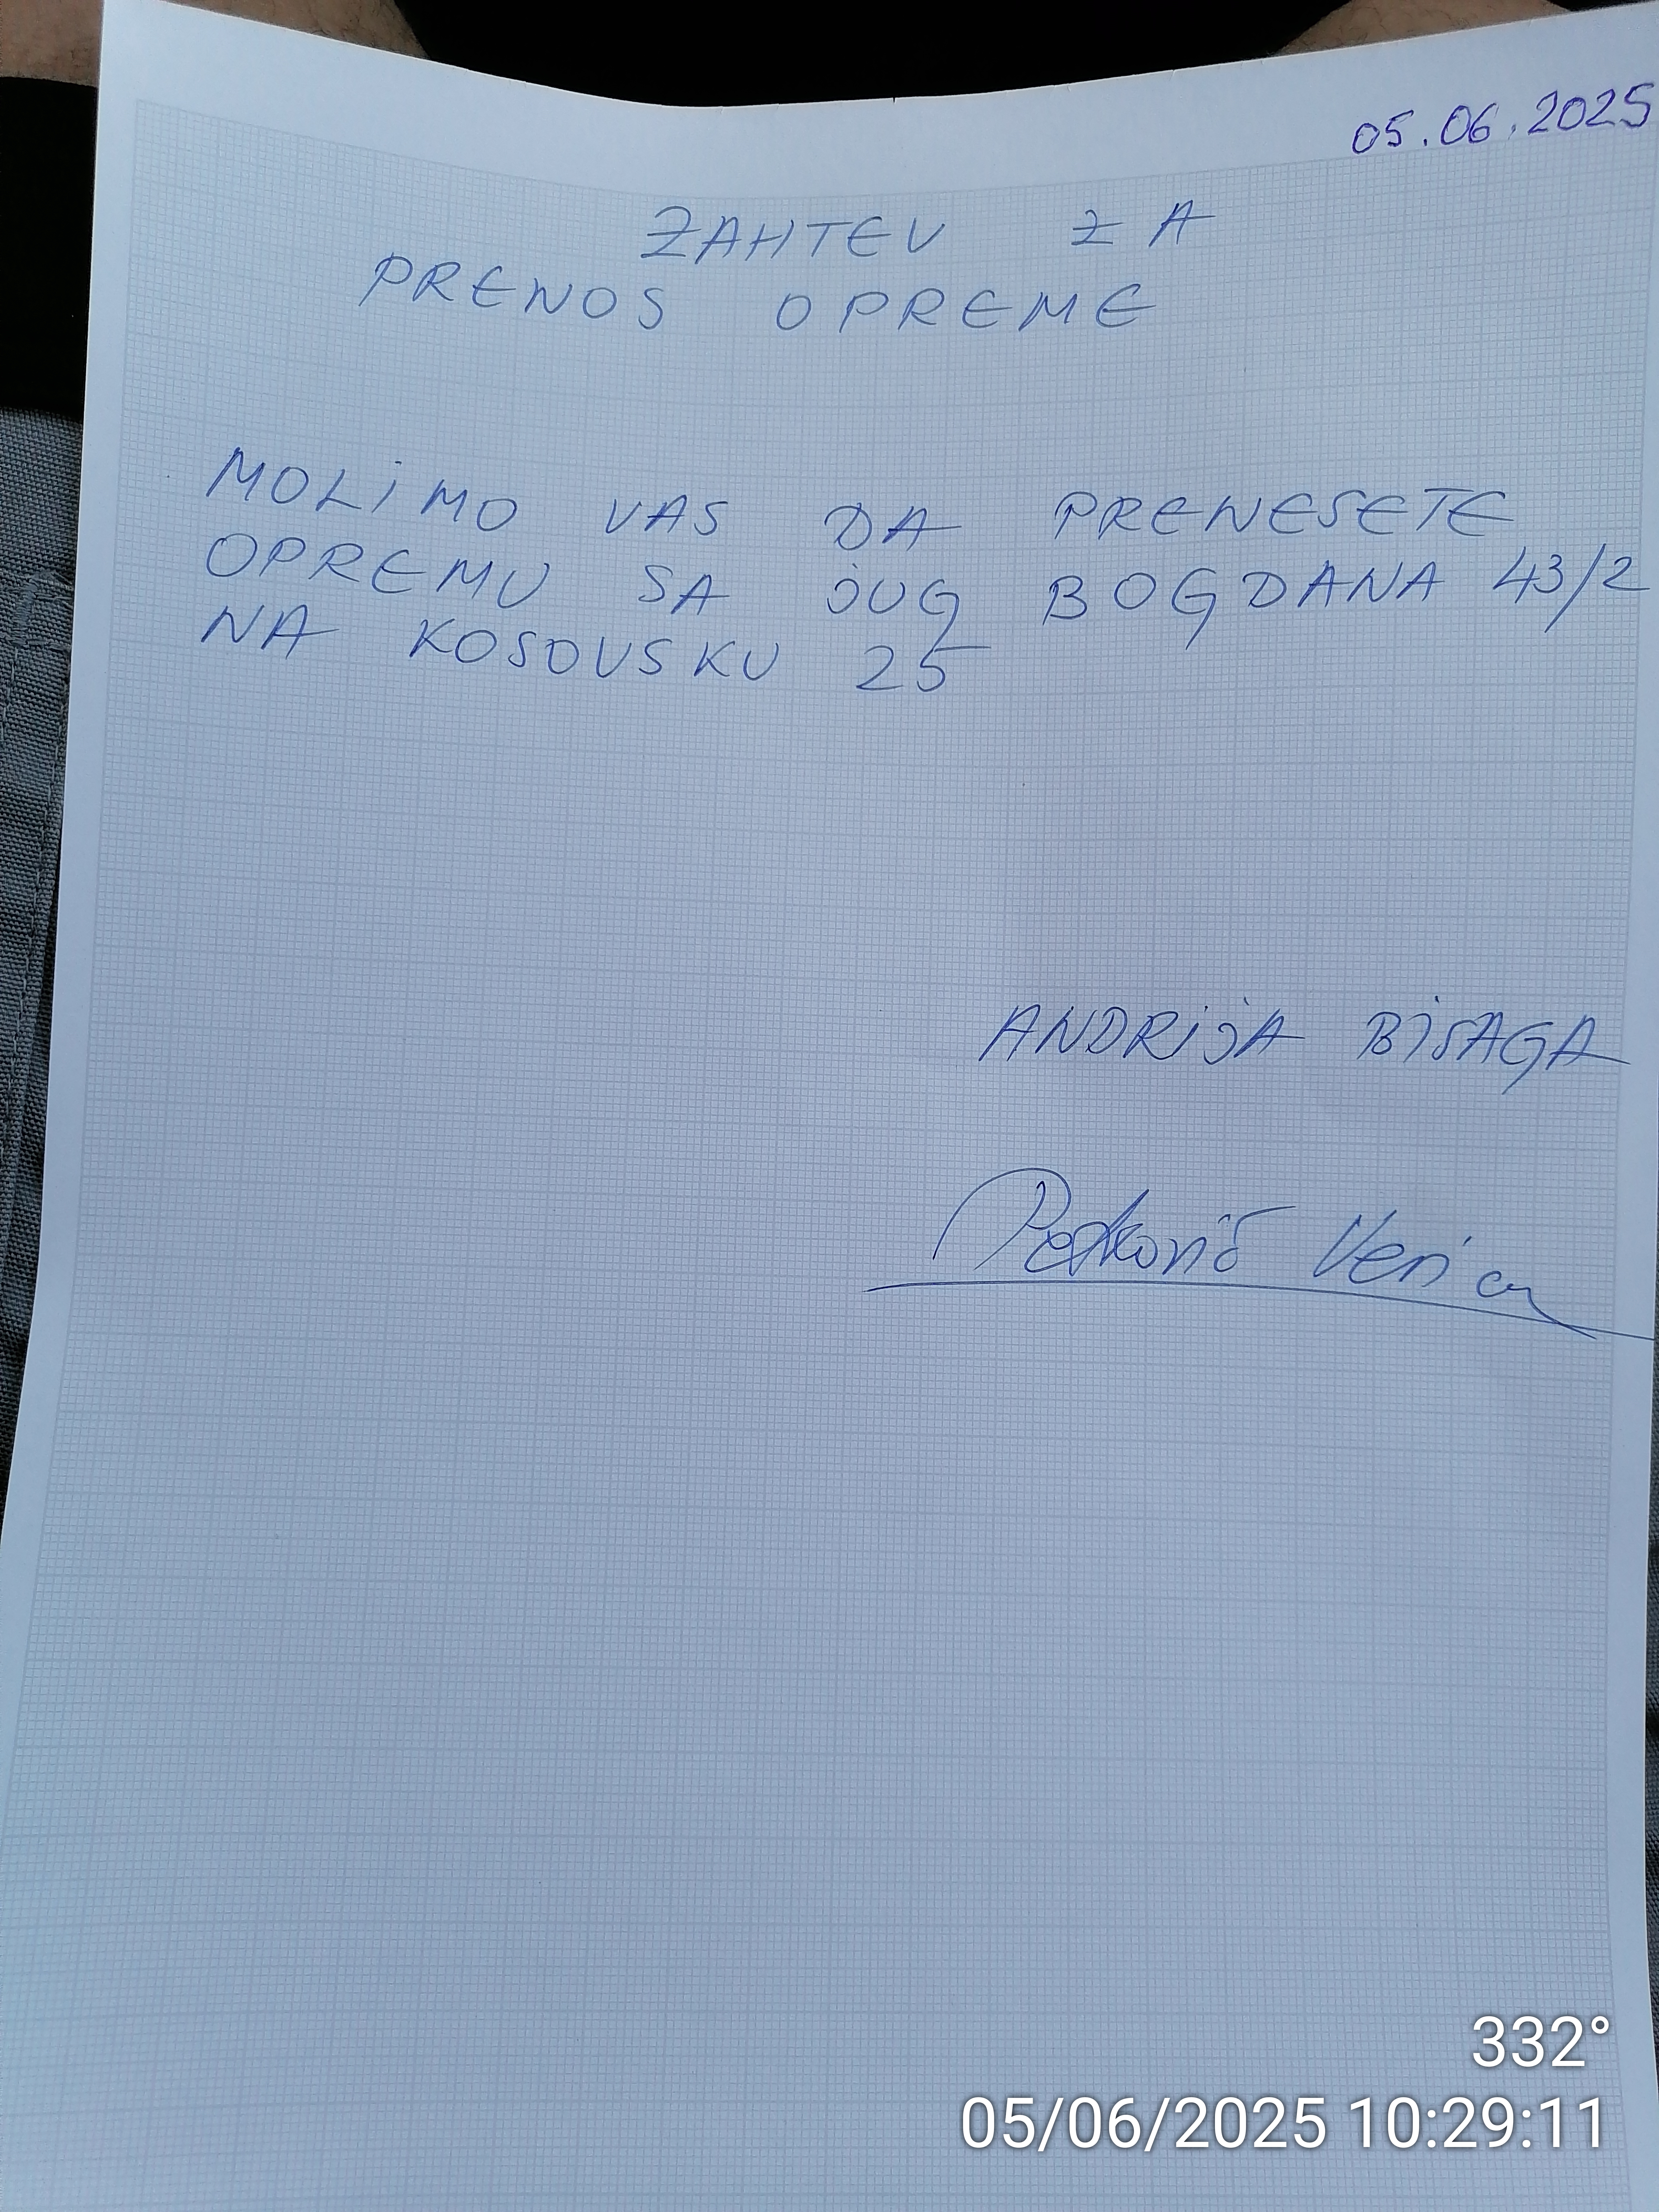 05.06.2025
ZAHTEV ZA
PRENOS OPREME
MOLiMO VAS DA PRENESETE
OPREMU SA jUG BOGDANA 43/2
NA KOSOVSKU 25
ANDRijA BiSAGA
Petković Verica
332°
05/06/2025 10:29:11